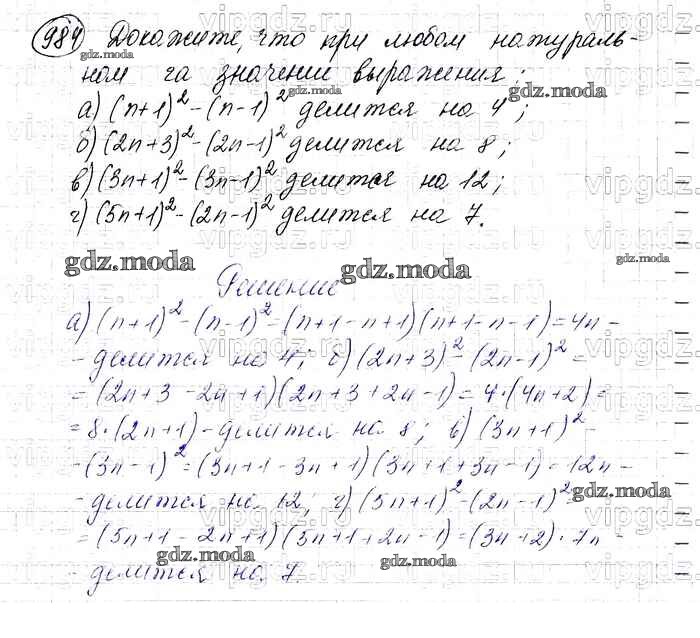 984 Докажите, что при любом натураль-
ном га значении выражения:
а) (n+1)² - (n-1)² делится на 4;
б) (2n+3)² - (2n-1)² делится на 8;
в) (3n+1)² - (3n-1)² делится на 12;
г) (5n+1)² - (2n-1)² делится на 7.
Решение
а) (n+1)² - (n-1)² = (n+1-n+1)(n+1-n-1) = 4n -
- делится на 4; б) (2n+3)² - (2n-1)² =
= (2n+3-2n+1)(2n+3+2n-1) = 4·(4n+2) =
= 8·(2n+1) - делится на 8; в) (3n+1)² -
- (3n-1)² = (3n+1-3n+1)(3n+1+3n-1) = 12n -
- делится на 12; г) (5n+1)² - (2n-1)² =
= (5n+1-2n+1)(3n+1+2n-1) = (3n+2)·7n -
- делится на 7.
gdz.moda
gdz.moda
gdz.moda
gdz.moda
gdz.moda
gdz.moda
gdz.moda
gdz.moda
gdz.moda
vipgdz.ru